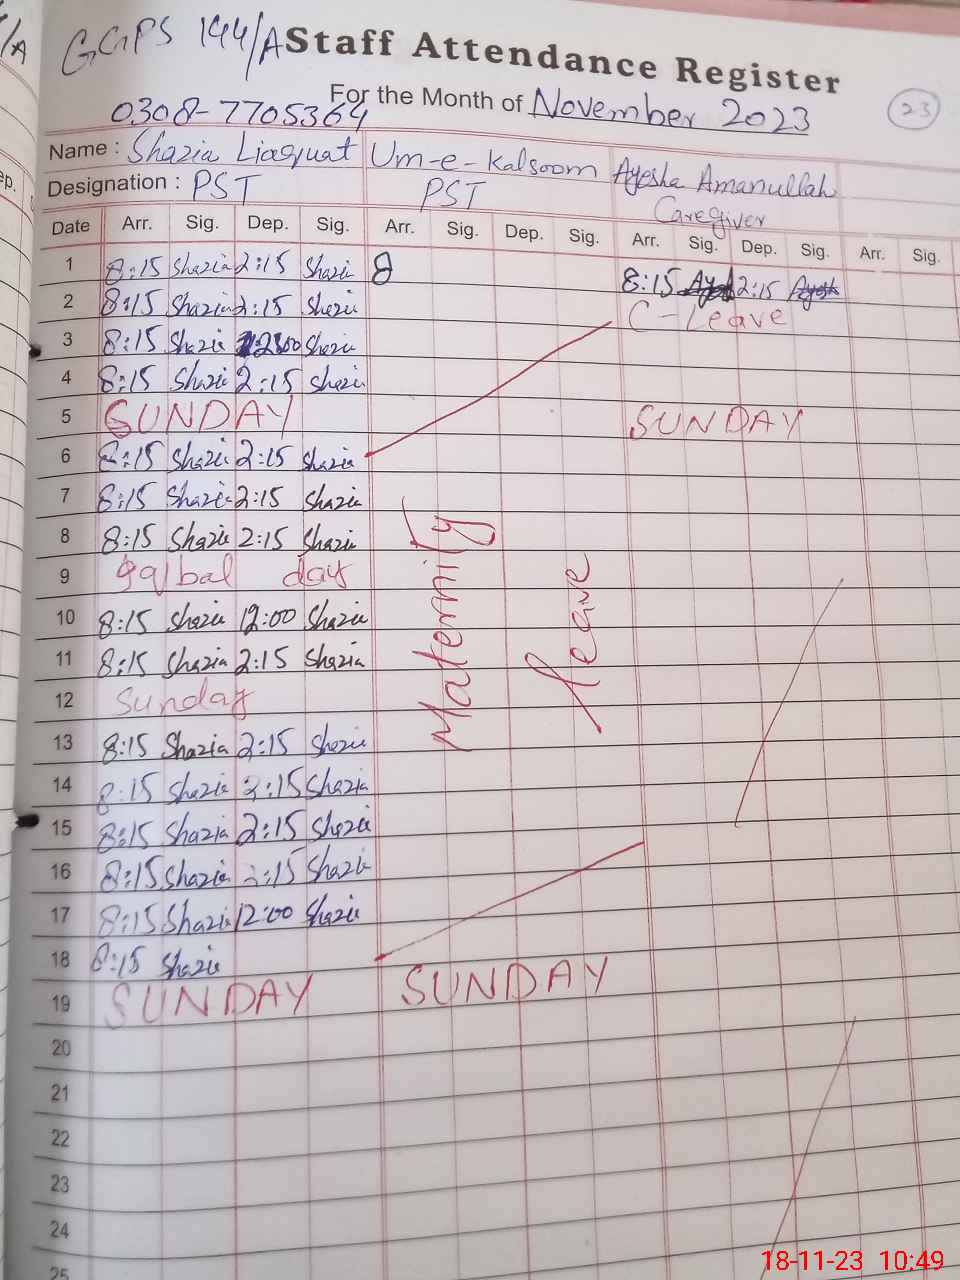 /A
GGPS 144/A Staff Attendance Register
For the Month of November 2023
23
0308-7705364
Name : Shazia Liaquat Um-e-Kalsoom Ayesha Amanullah
ep.
Designation : PST PST Caregiver
Date Arr. Sig. Dep. Sig. Arr. Sig. Dep. Sig. Arr. Sig. Dep. Sig. Arr. Sig.
1 8:15 Shazia 2:15 Shazia 8 8:15 2:15
2 8:15 Shazia 2:15 Shazia C-Leave
3 8:15 Shazia Shazia
4 8:15 Shazia 2:15 Shazia
5 SUNDAY SUNDAY
6 8:15 Shazia 2:15 Shazia
7 8:15 Shazia 2:15 Shazia
8 8:15 Shazia 2:15 Shazia
9 Iqbal day
Maternity Leave
10 8:15 Shazia 12:00 Shazia
11 8:15 Shazia 2:15 Shazia
12 Sunday
13 8:15 Shazia 2:15 Shazia
14 8:15 Shazia 2:15 Shazia
15 8:15 Shazia 2:15 Shazia
16 8:15 Shazia 2:15 Shazia
17 8:15 Shazia 12:00 Shazia
18 8:15 Shazia
19 SUNDAY SUNDAY
20
21
22
23
24
25
18-11-23 10:49